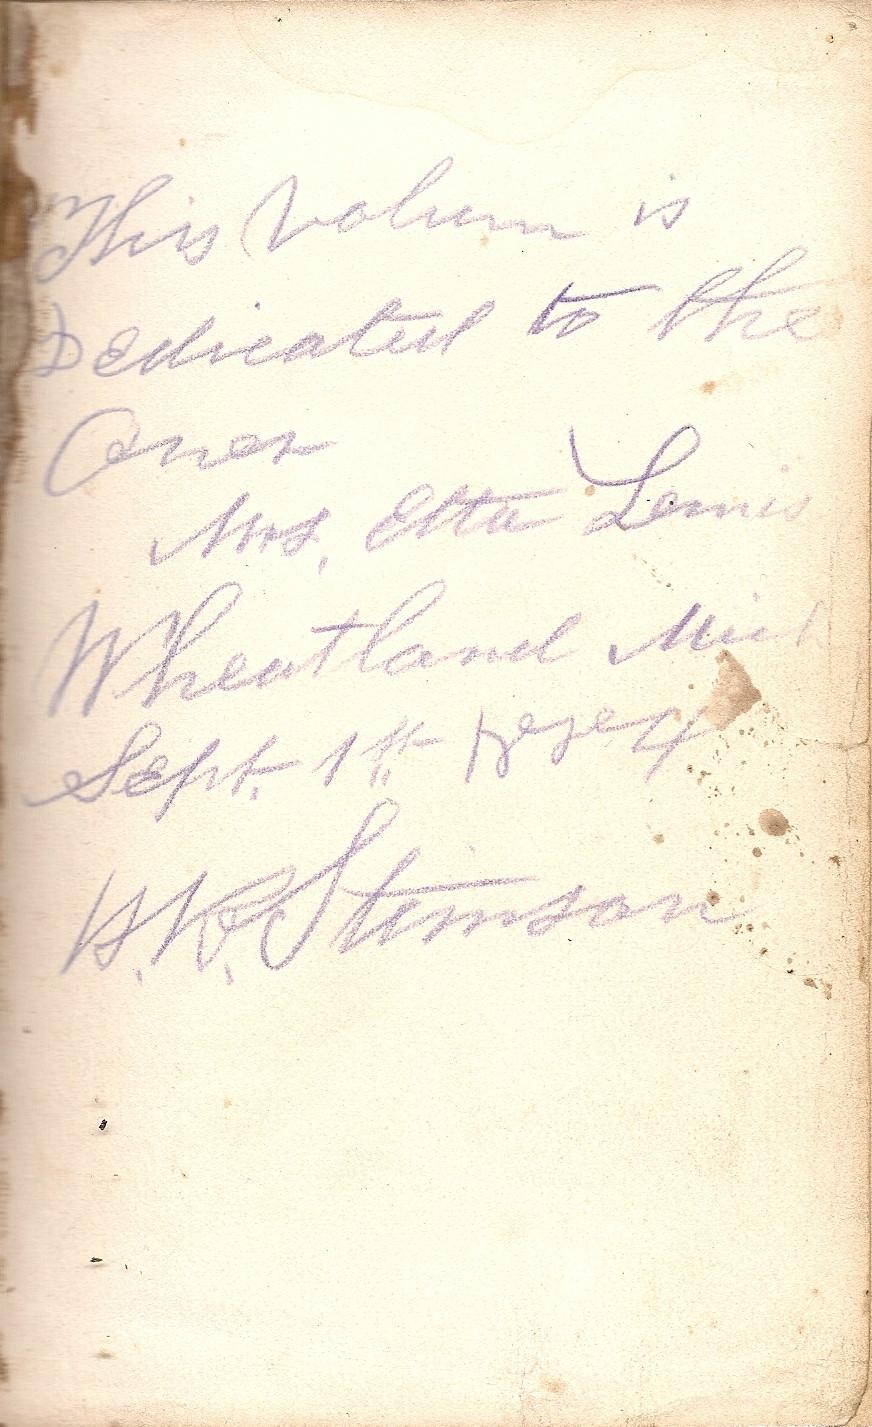 This Volum is
Dedicated to the
Oner
Mrs. Etta Lewis
Wheatland Mich
Sept. 1st
Stimson